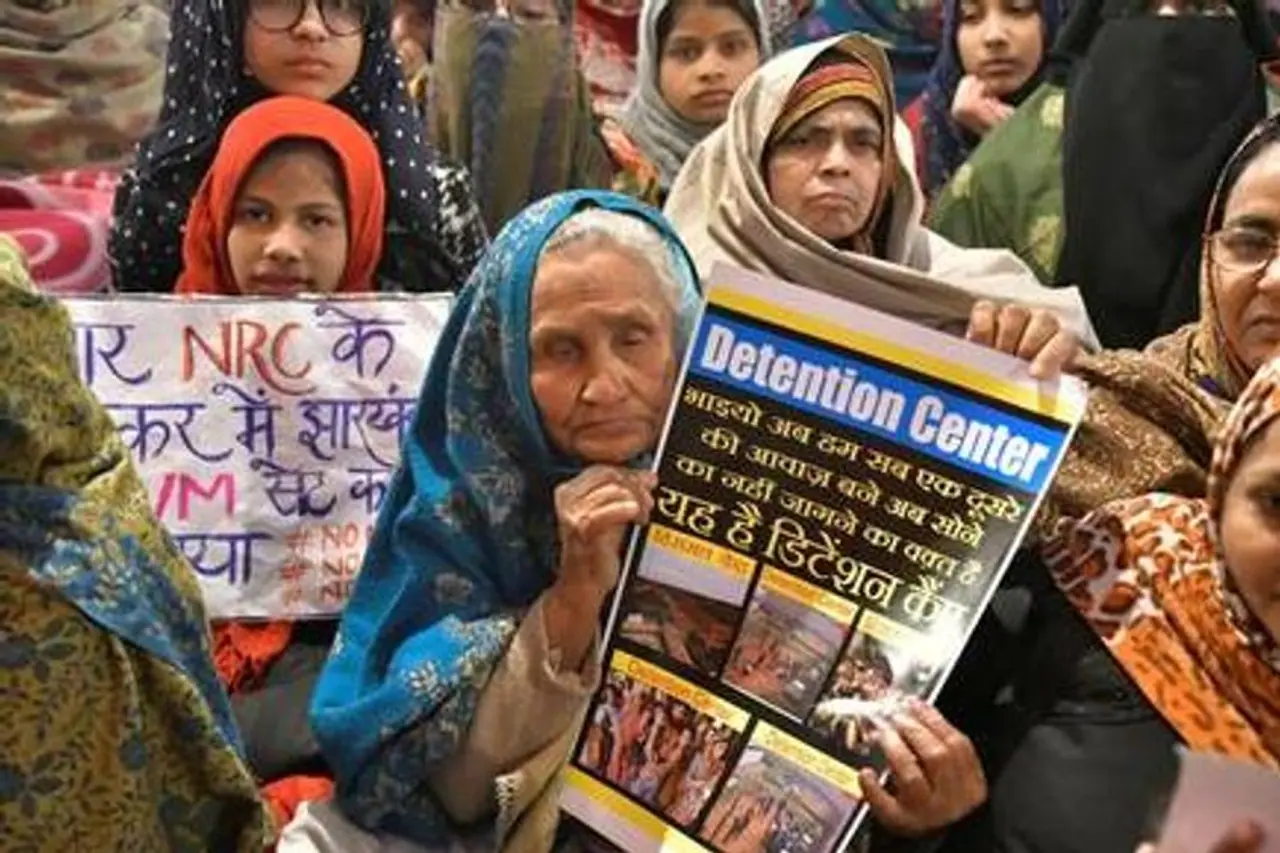 ार NRC के
कर में झारख
VM सेट क
्या # NO
# NO
# NO
Detention Center
भाइयो अब हम सब एक दूसरे
की आवाज़ बने अब सोने
का नहीं जागने का वक्त है
यह है डिटेंशन कैंप
Detention Center